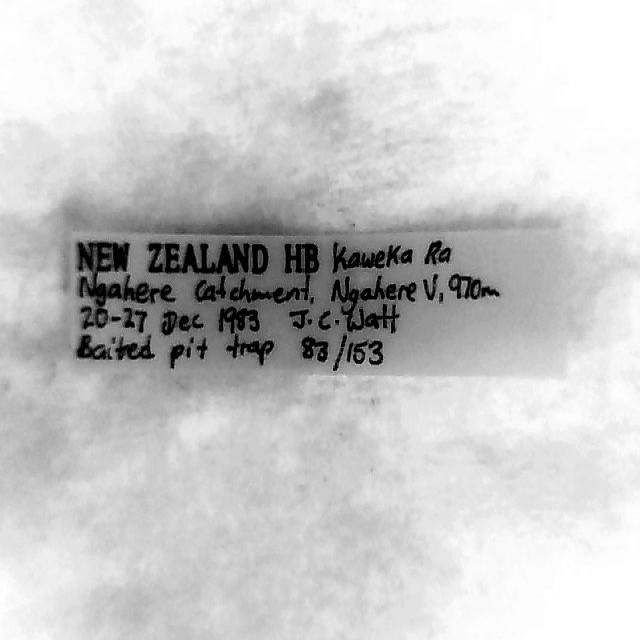 NEW ZEALAND HB Kaweka Ra
Ngahere Catchment, Ngahere V, 970m
20-27 Dec 1983 J.C. Watt
Baited pit trap 83/153